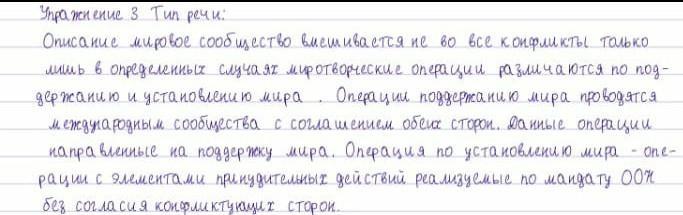 Упражнение 3 Тип речи:
Описание мировое сообщество вмешивается не во все конфликты только
лишь в определенных случаях миротворческие операции различаются по под-
держанию и установлению мира . Операции поддержанию мира проводятся
международным сообщества с соглашением обеих сторон. Данные операции
направленные на поддержку мира. Операция по установлению мира - опе-
рации с элементами принудительных действий реализуемые по мандату ООН
без согласия конфликтующих сторон.